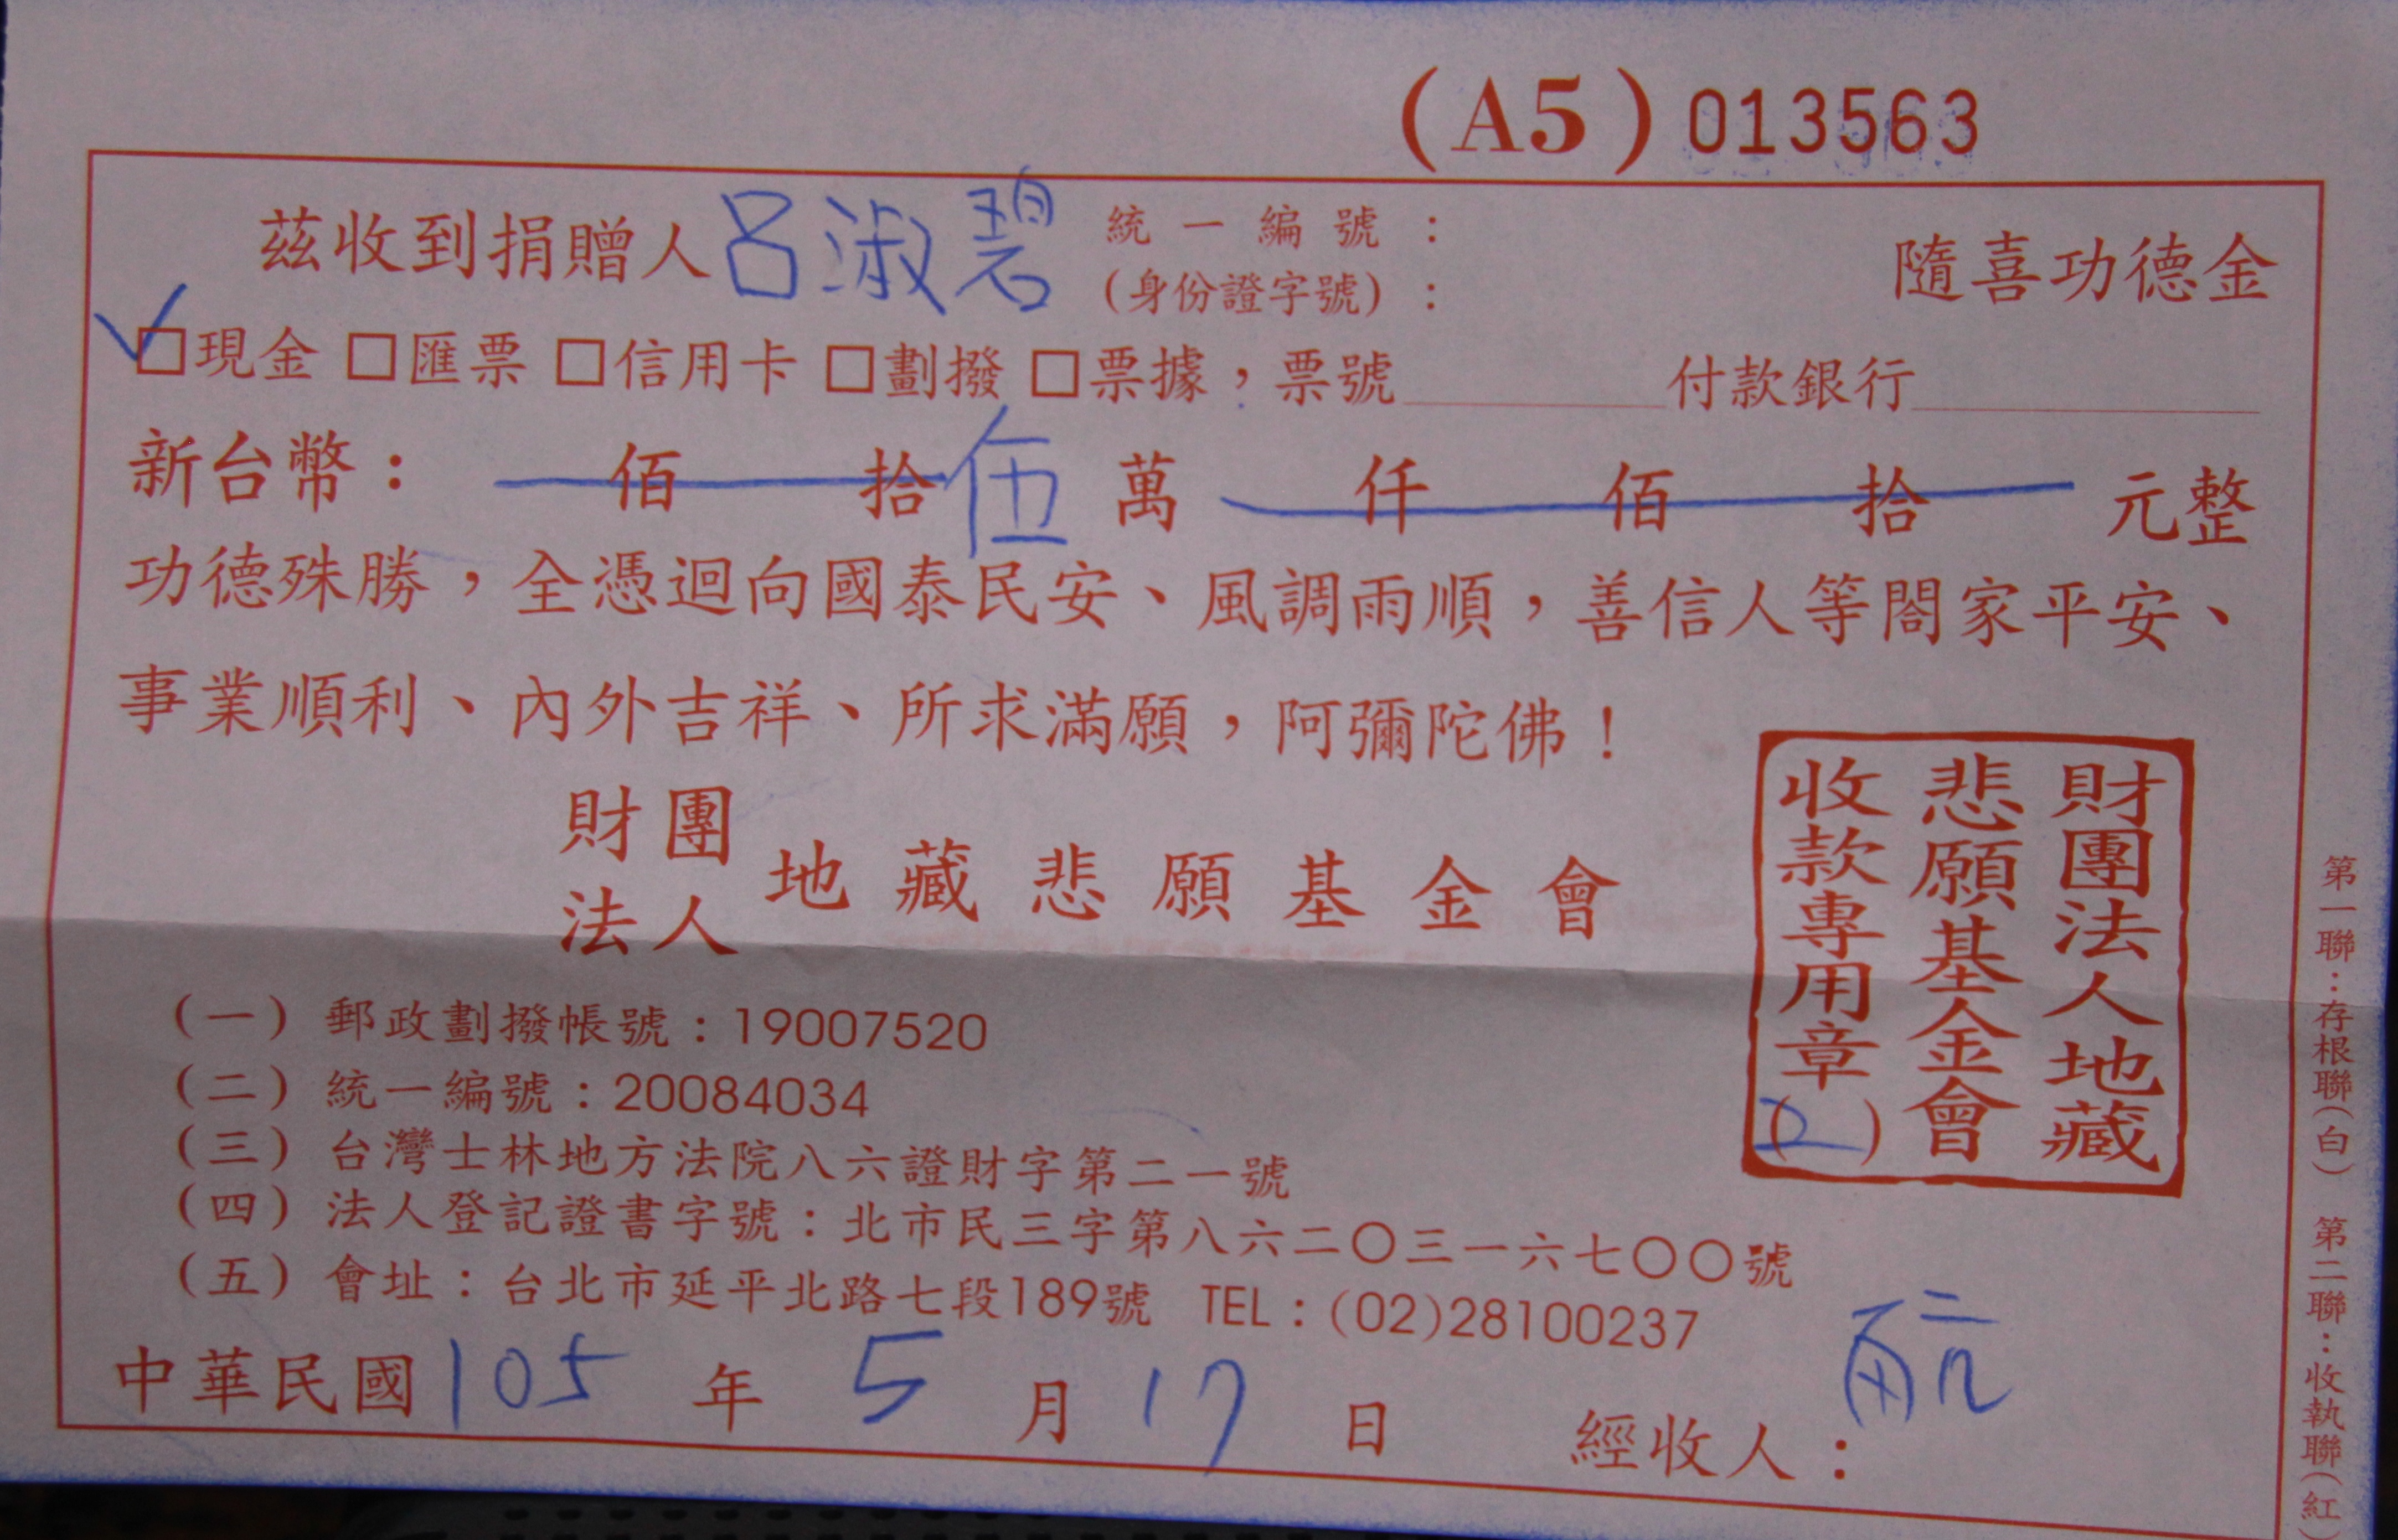 (A5) 013563
茲收到捐贈人呂淑碧 統一編號：
(身份證字號)： 隨喜功德金
□現金 □匯票 □信用卡 □劃撥 □票據，票號 付款銀行
新台幣： 佰 拾 伍 萬 仟 佰 拾 元整
功德殊勝，全憑迴向國泰民安、風調雨順，善信人等閤家平安、
事業順利、內外吉祥、所求滿願，阿彌陀佛！
財團
法人 地藏悲願基金會
財團法人地藏
悲願基金會
收款專用章
(2)
(一) 郵政劃撥帳號：19007520
(二) 統一編號：20084034
(三) 台灣士林地方法院八六證財字第二一號
(四) 法人登記證書字號：北市民三字第八六二〇三一六七〇〇號
(五) 會址：台北市延平北路七段189號 TEL：(02)28100237
中華民國105年5月17日 經收人：
第一聯：存根聯(白) 第二聯：收執聯(紅